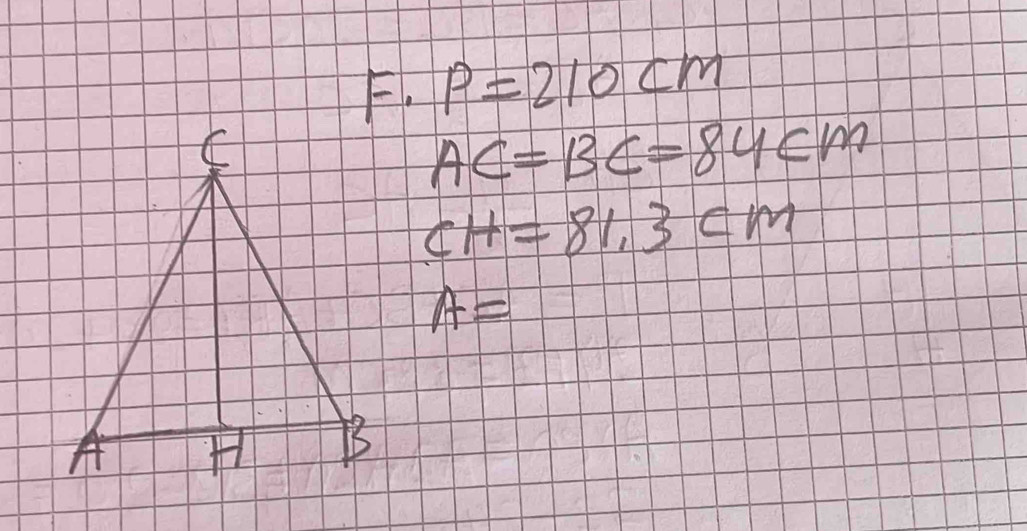 F. P=210 cm
C
AC=BC=84cm
CH=81,3 cm
A=
A H B